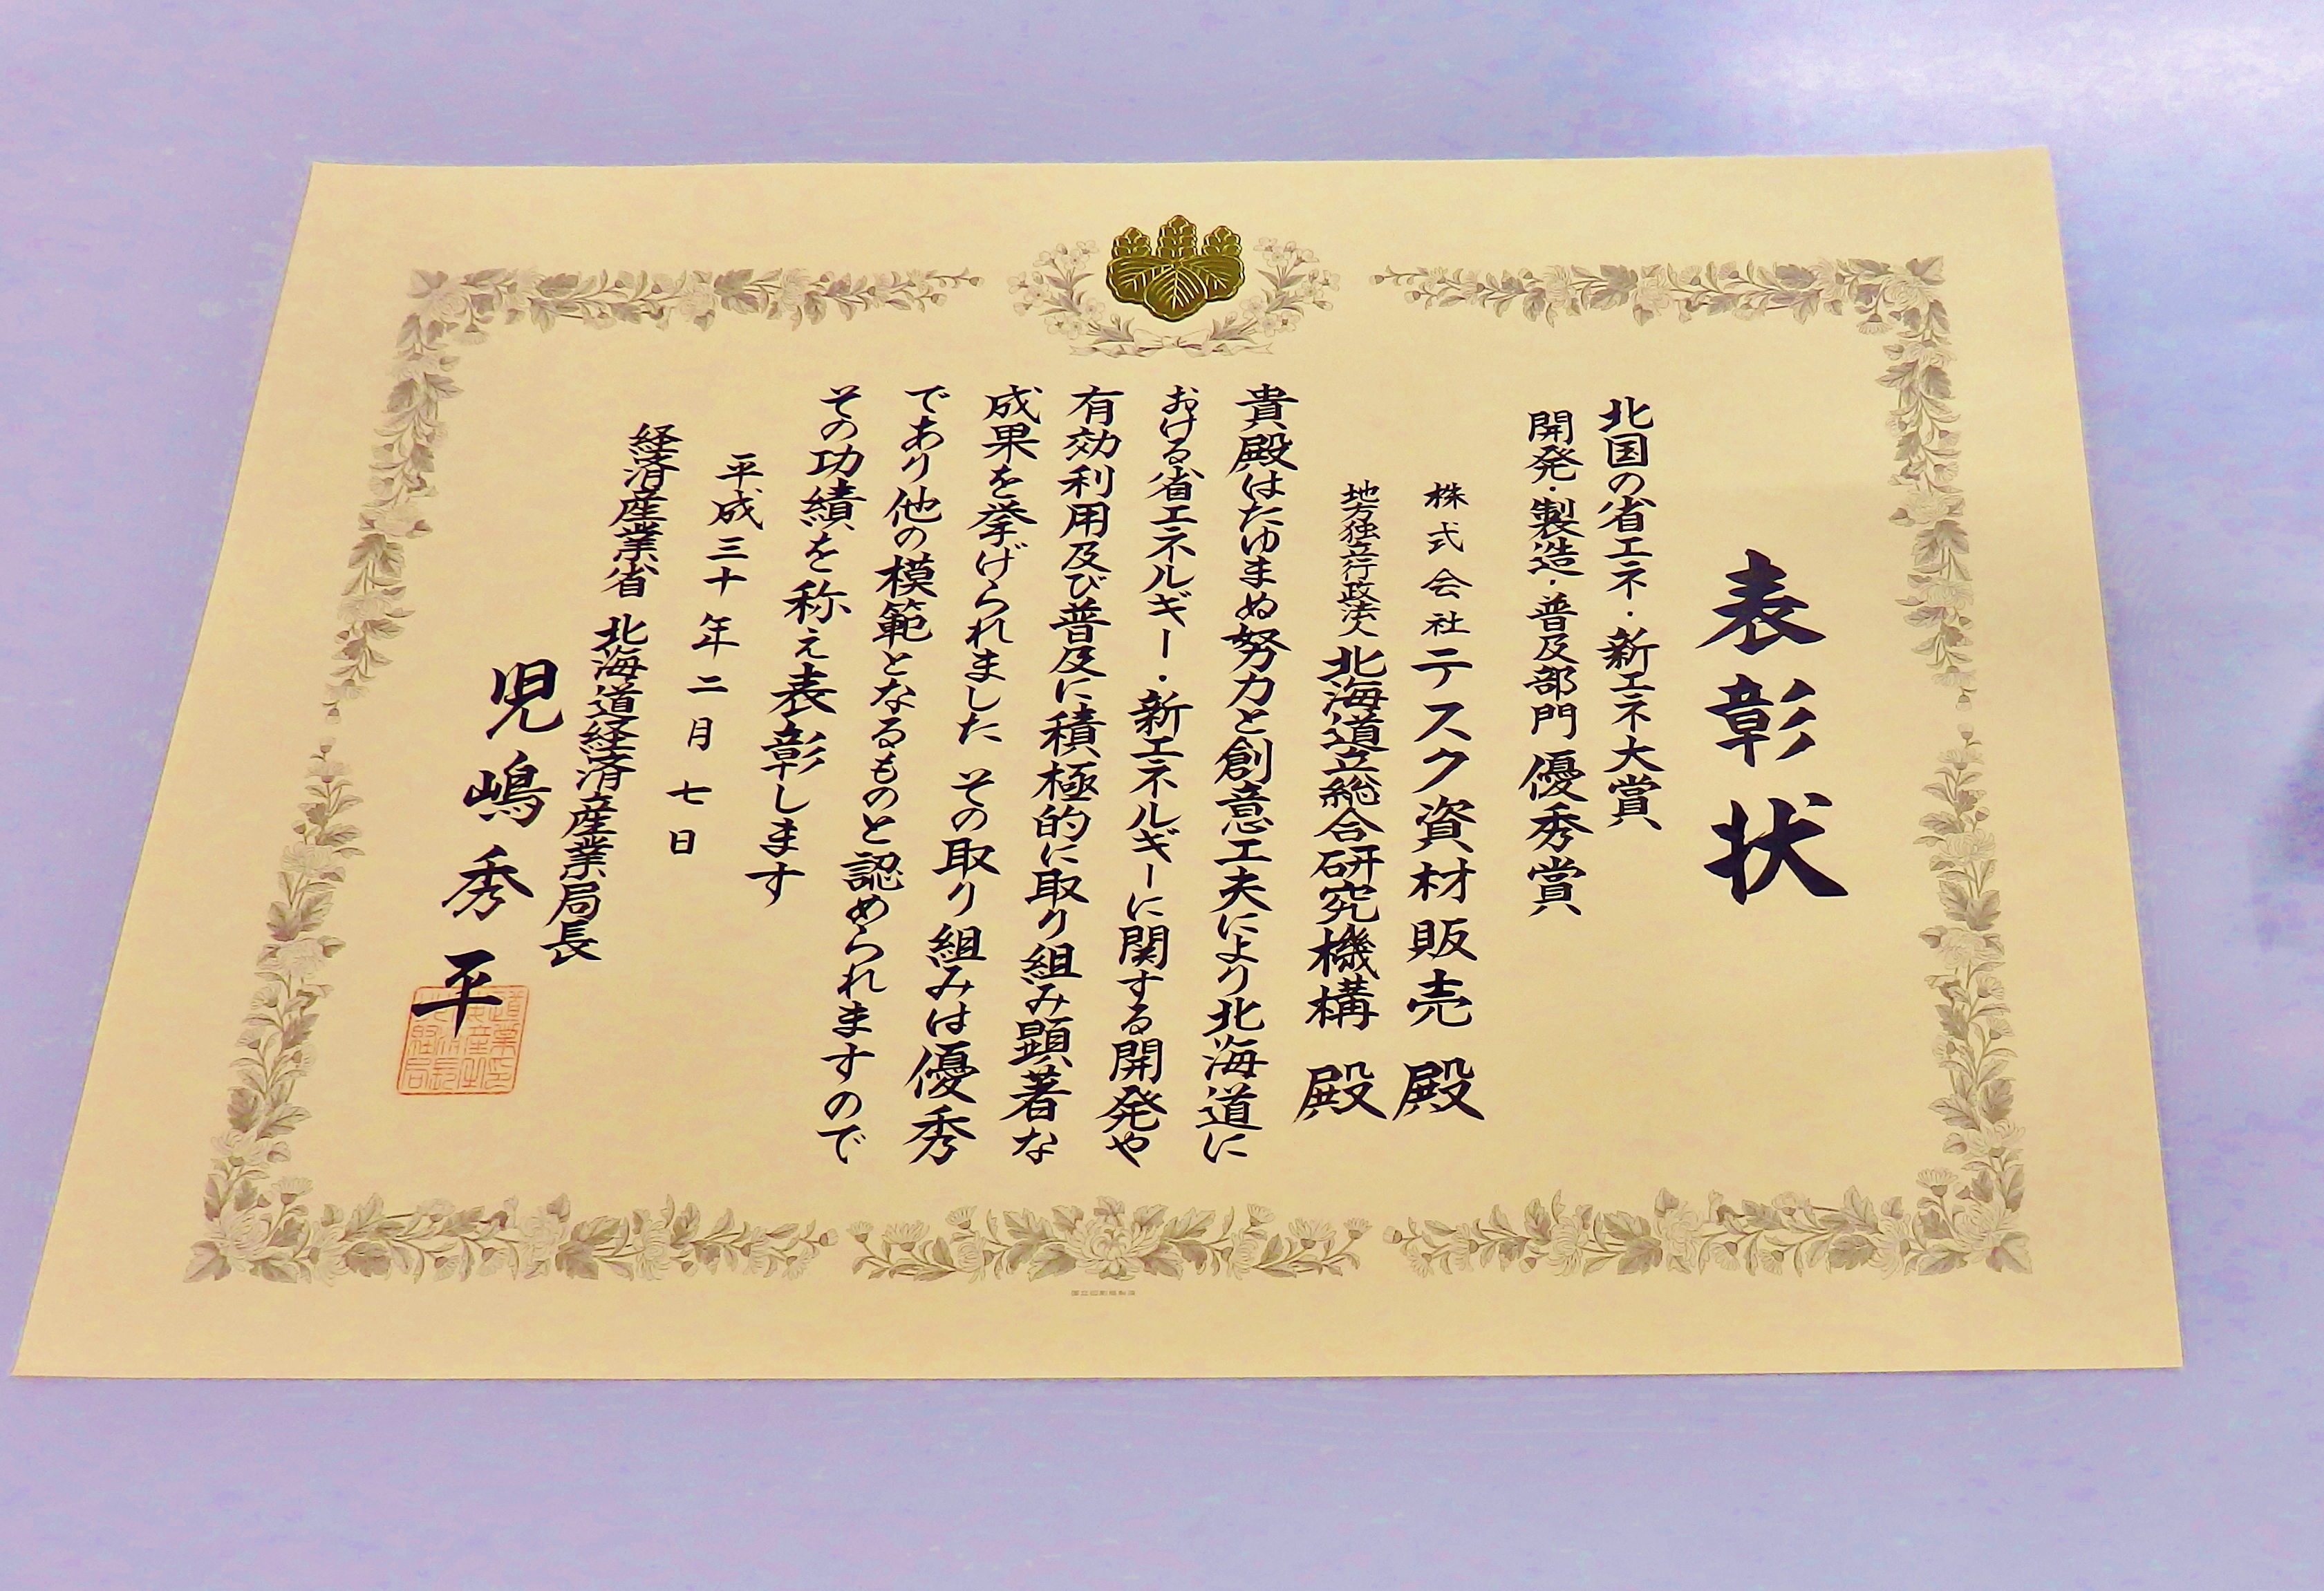 表彰状
北国の省エネ・新エネ大賞
開発・製造・普及部門 優秀賞
株式会社テスク資材販売 殿
地方独立行政法人 北海道立総合研究機構 殿
貴殿はたゆまぬ努力と創意工夫により北海道に
おける省エネルギー・新エネルギーに関する開発や
有効利用及び普及に積極的に取り組み顕著な
成果を挙げられました その取り組みは優秀
であり他の模範となるものと認められますので
その功績を称え表彰します
平成三十年二月七日
経済産業省 北海道経済産業局長
児嶋秀平